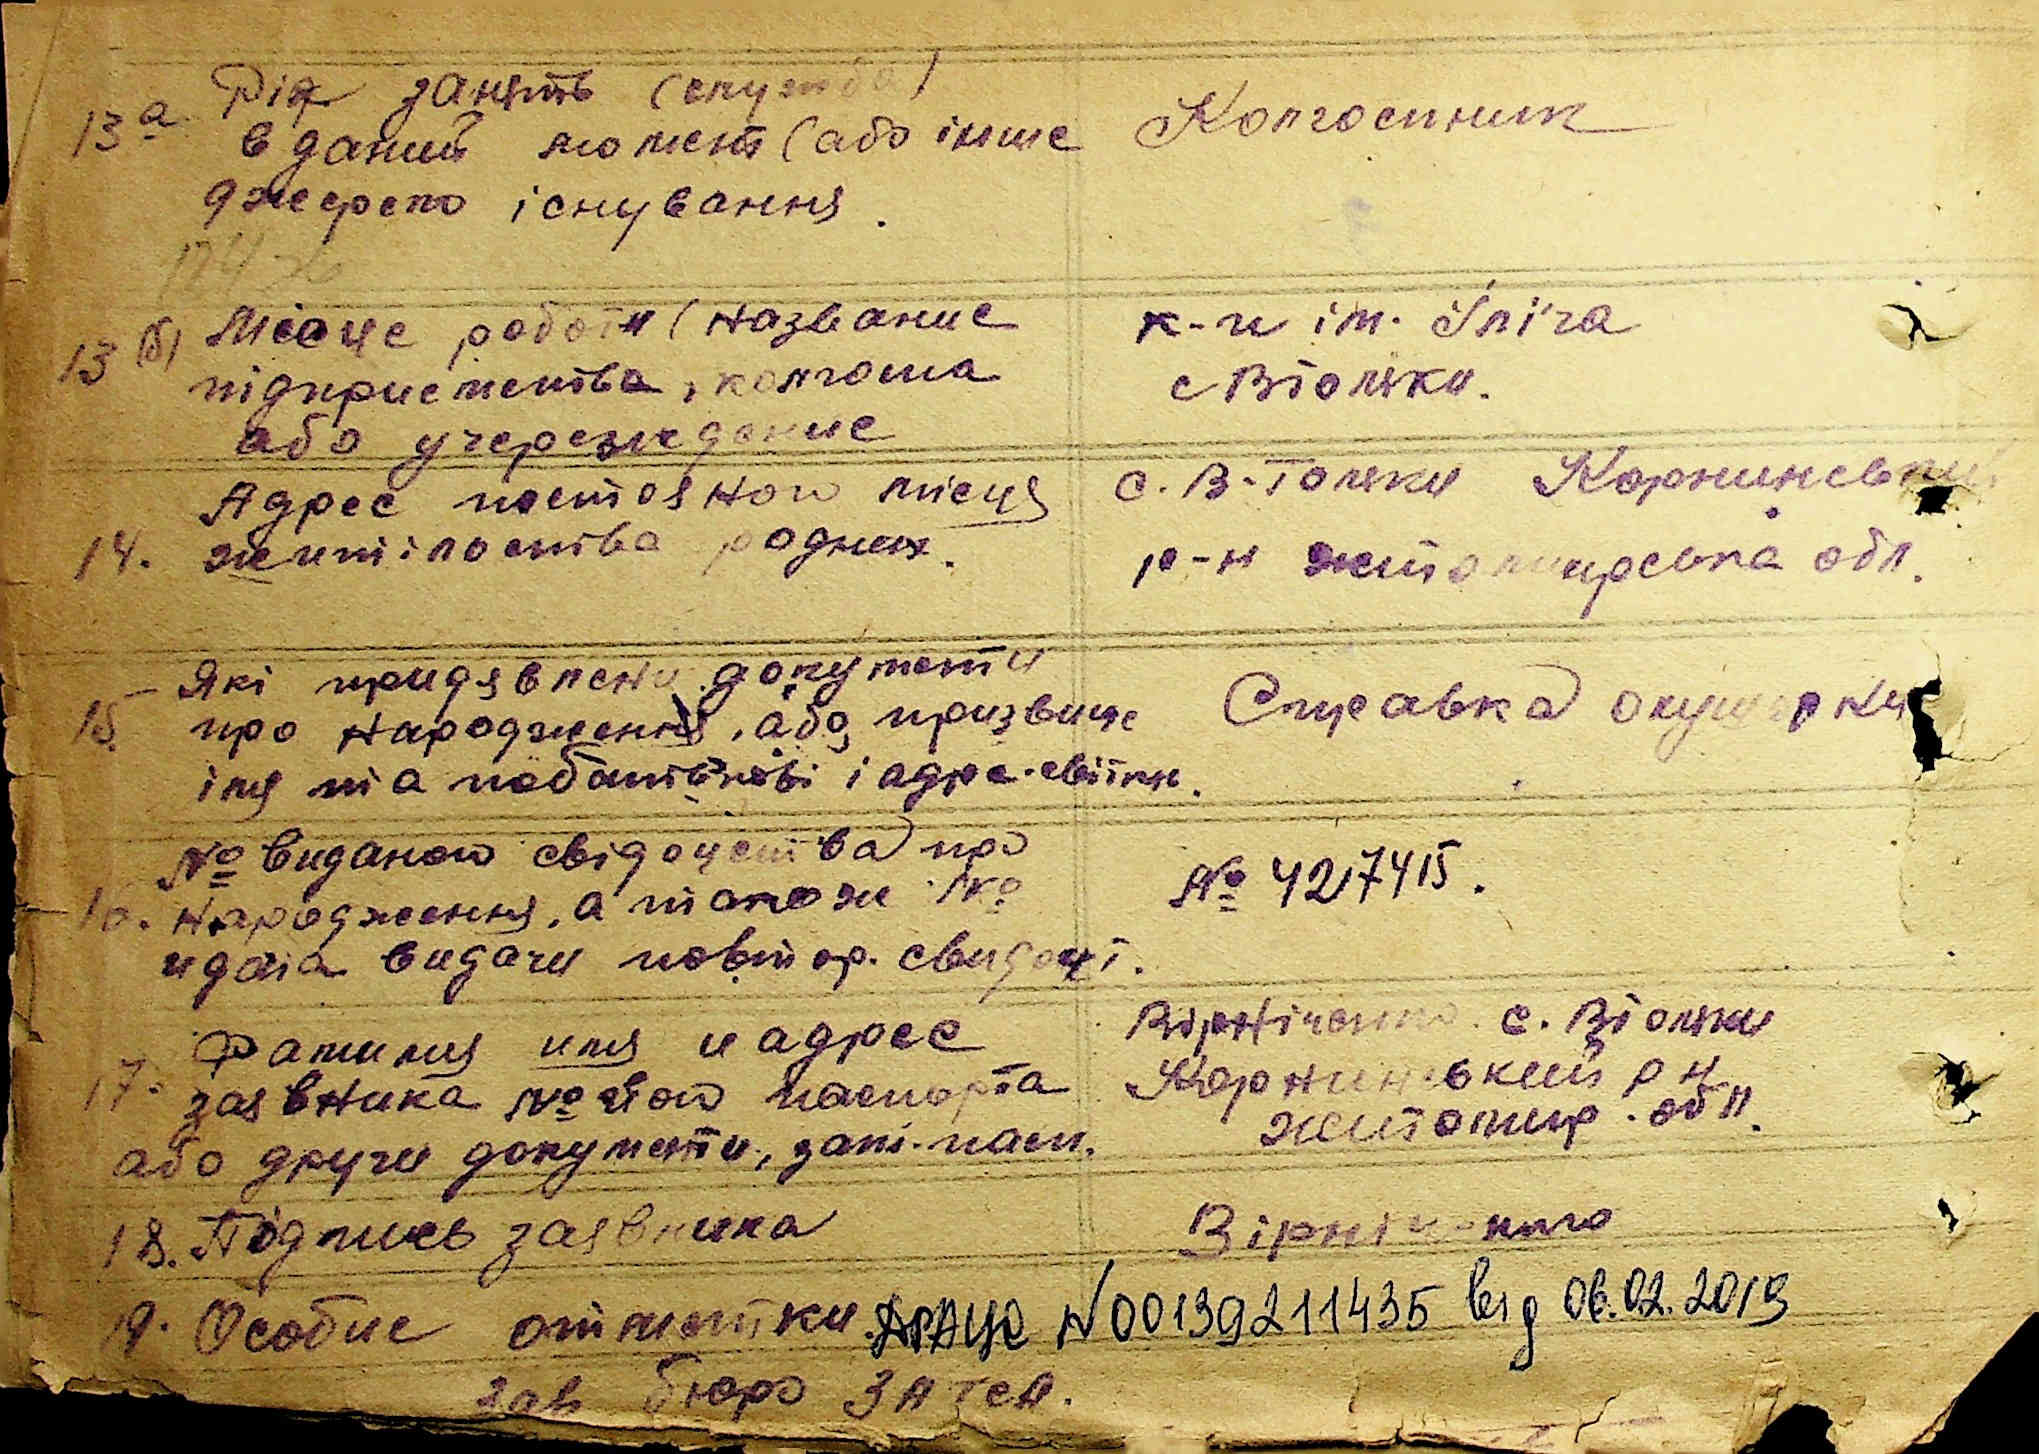 13а. Рід занять (служба)
в даний момент (або інше
джерело існування.
Колгоспник
13 (б) Місце роботи (название
підприємства, колгоспа
або учереждение
к-п ім. Ілліча
с Втоляки.
14. Адрес постояного місця
жительства родних.
с. В-Толяки Корнинський
р-н Житомирська обл.
15. Які придявлени документи
про народження, або призвище
імя та побатькові і адре. свідки.
Справка окушерки
16. № виданого свідоцтва про
народження, а також №
и дата видачи повтор. свидоцт.
№ 427415.
17. Фамилия имя и адрес
заявника № його паспорта
або други документи, замі. пасп.
с. Втоляки
Корнинський р н
Житомир. обл.
18. Підпись заявника
19. Особие отметки. ДРАЦС N00139211435 від 06.02.2019
Зав бюро ЗАГСА.